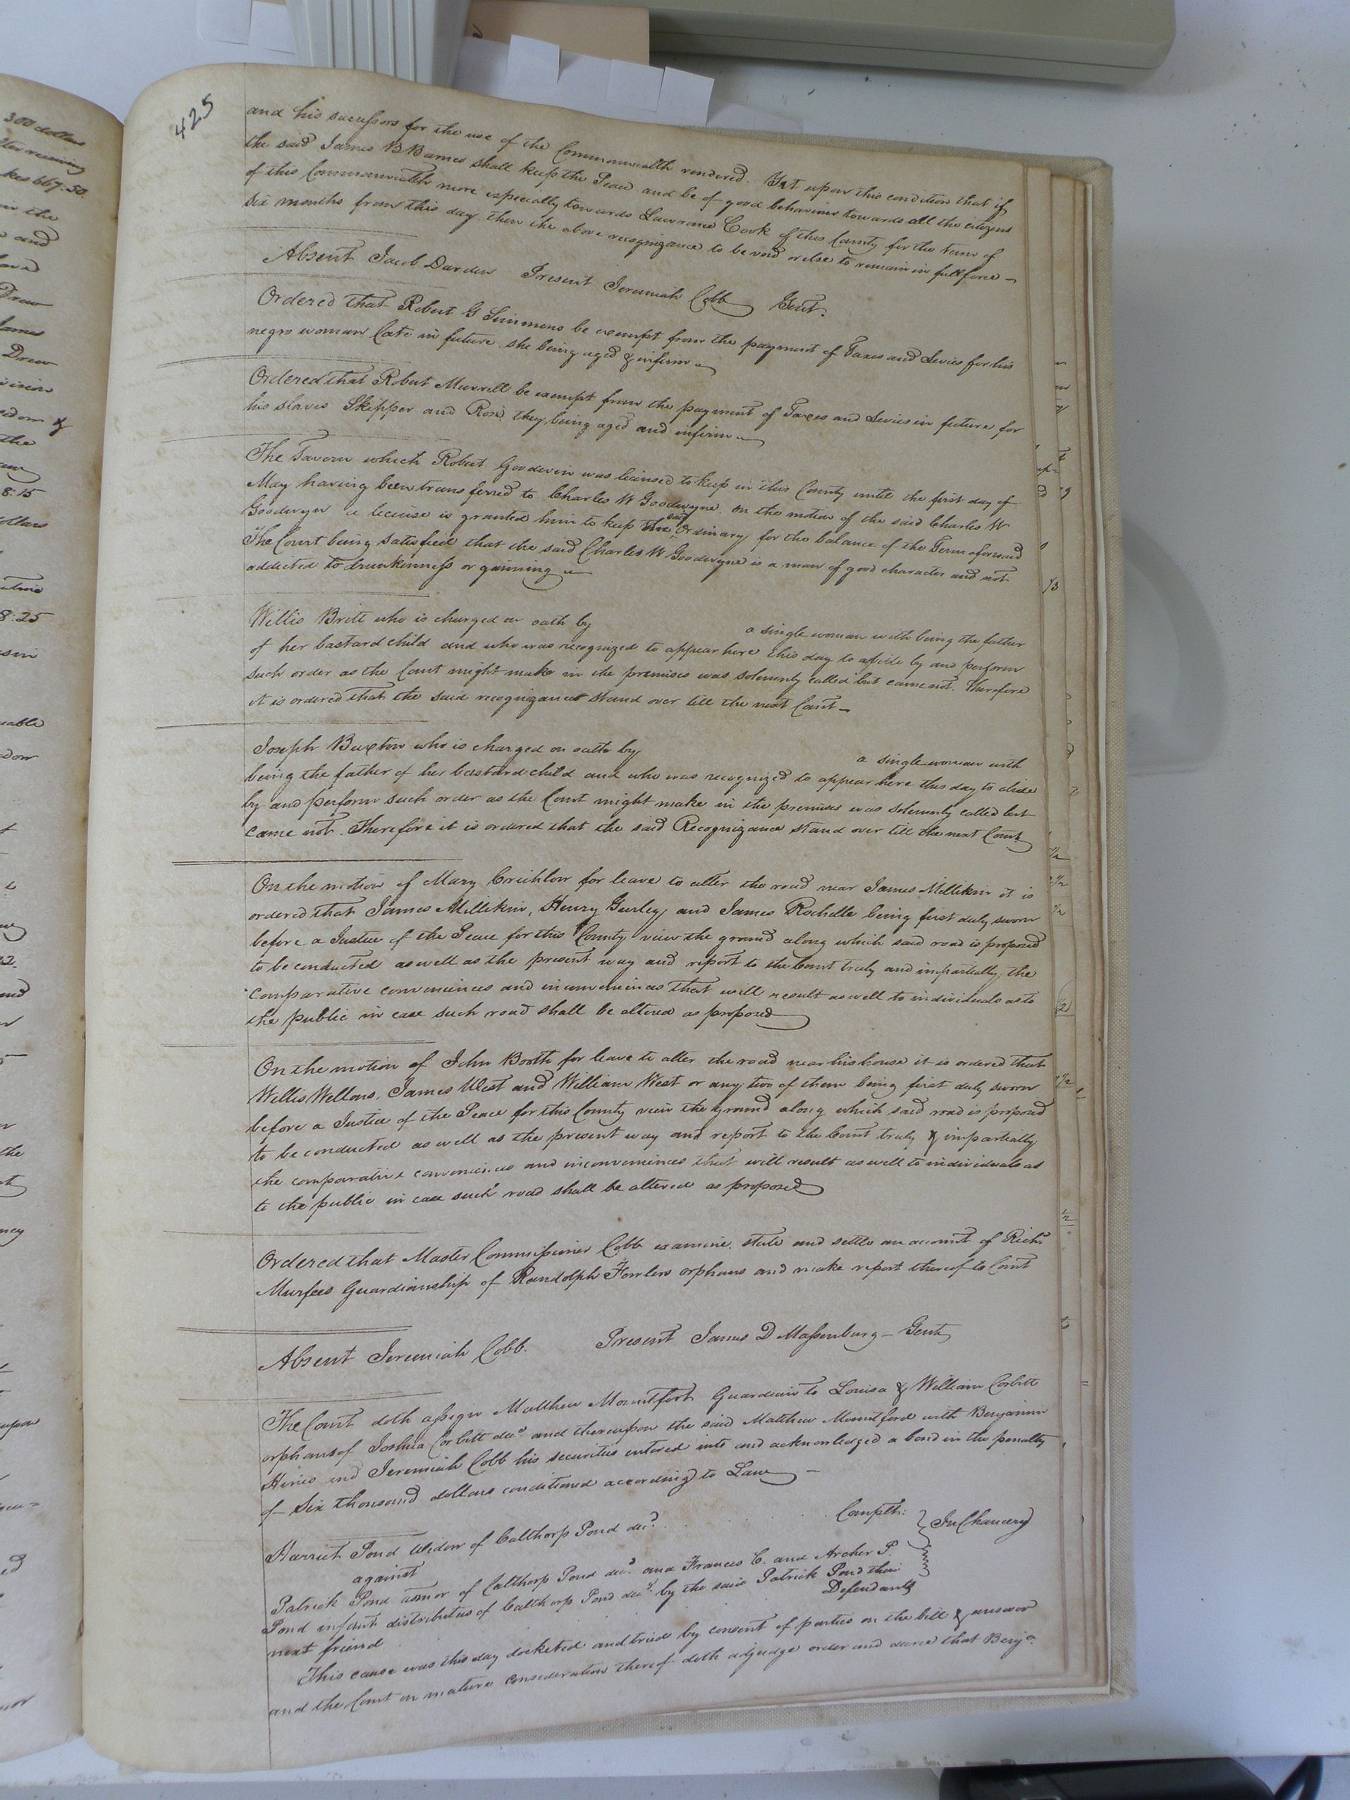 425
and his successors for the use of the Commonwealth rendered. Yet upon this condition that if
the said James B Barnes shall keep the Peace and be of good behaviour towards all the citizens
of this Commonwealth more especially towards Lawrence Cook of this County for the term of
six months from this day then the above recognizance to be void or else to remain in full force
Absent Jacob Darden Present Jeremiah Cobb Gent.
Ordered that Robert G Simmons be exempt from the payment of Taxes and Levies for his
negro woman Cate in future she being aged & infirm
Ordered that Robert Murrell be exempt from the payment of Taxes and Levies in future for
his slaves Skipper and Rose they being aged and infirm
The Tavern which Robert Goodwin was licensed to keep in this County until the first day of
May having been transferred to Charles W Goodwyne on the motion of the said Charles W
Goodwyn a license is granted him to keep the said Ordinary for the balance of the Term aforesaid
The Court being satisfied that the said Charles W Goodwyne is a man of good character and not
addicted to drunkenness or gaming
Willis Britt who is charged on oath by a single woman with being the father
of her bastard child and who was recognized to appear here this day to abide by and perform
such order as the Court might make in the premises was solemnly called but came not. Therefore
it is ordered that the said recognizance stand over till the next Court
Joseph Buxton who is charged on oath by a single woman with
being the father of her bastard child and who was recognized to appear here this day to abide
by and perform such order as the Court might make in the premises was solemnly called but
came not. Therefore it is ordered that the said Recognizance stand over till the next Court
On the motion of Mary Crichlow for leave to alter the road near James Millikin it is
ordered that James Millikin, Henry Gurley and James Rochelle being first duly sworn
before a Justice of the Peace for this County view the ground along which said road is proposed
to be conducted as well as the present way and report to the Court truly and impartially the
comparative conveniences and inconveniences that will result as well to individuals as to
the public in case such road shall be altered as proposed
On the motion of John Booth for leave to alter the road near his house it is ordered that
Willis Wellons, James West and William West or any two of them being first duly sworn
before a Justice of the Peace for this County view the ground along which said road is proposed
to be conducted as well as the present way and report to the Court truly & impartially
the comparative conveniences and inconveniences that will result as well to individuals as
to the public in case such road shall be altered as proposed
Ordered that Master Commissioner Cobb examine, state and settle an account of Richd
Murfees Guardianship of Randolph Fowlers orphans and make report thereof to Court
Absent Jeremiah Cobb. Present James D Massenburg - Gent
The Court doth assign Matthew Mountfort Guardian to Louisa & William Corbitt
orphans of Joshua Corbitt decd and thereupon the said Matthew Mountford with Benjamin
Hines and Jeremiah Cobb his securities entered into and acknowledged a bond in the penalty
of Six thousand dollars conditioned according to Law
Harriet Pond widow of Calthorp Pond decd. Complt:
against In Chancery
Patrick Pond admor of Calthorp Pond decd and Frances C. and Archer P.
Pond infant distributees of Calthorp Pond decd by the said Patrick Pond their
next friend Defendants
This cause was this day docketed and tried by consent of parties on the bill & answer
and the Court on mature consideration thereof doth adjudge order and decree that Benja